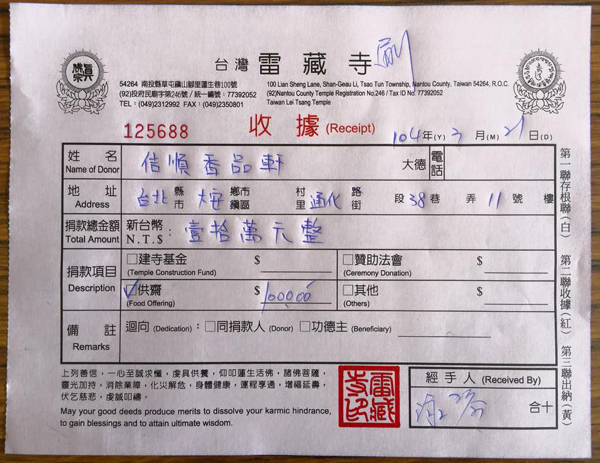 台灣 雷藏寺 刷
54264 南投縣草屯鎮山腳里蓮生巷100號
(92)投府民廟字第246號 / 統一編號：77392052
TEL：(049)2312992 FAX：(049)2350801
100 Lian Sheng Lane, Shan-Geau Li, Tsao Tun Township, Nantou County, Taiwan 54264, R.O.C.
(92)Nantou County Temple Registration No.246 / Tax ID No. 77392052
Taiwan Lei Tsang Temple
125688 收據 (Receipt) 104年(Y) 3月(M) 21日(D)
姓名 Name of Donor 信順香品軒 大德 電話
地址 Address 台北縣市 大安鄉市鎮區 村里 通化路街 段38巷 弄11號 樓
捐款總金額 Total Amount 新台幣：N.T.$： 壹拾萬元整
捐款項目 Description
□建寺基金 (Temple Construction Fund) $
□贊助法會 (Ceremony Donation) $
□供齋 (Food Offering) $ 100000
□其他 (Others) $
備註 Remarks 迴向 (Dedication)：□同捐款人 (Donor) □功德主 (Beneficiary)
上列善信，一心至誠求懺，虔具供養，仰叩蓮生活佛，諸佛菩薩，
靈光加持，消除業障，化災解危，身體健康，運程亨通，增福延壽，
伏乞慈悲，虔誠叩禱。
May your good deeds produce merits to dissolve your karmic hindrance,
to gain blessings and to attain ultimate wisdom.
雷藏寺印
經手人 (Received By)
合十
第一聯存根聯(白) 第二聯收據(紅) 第三聯出納(黃)